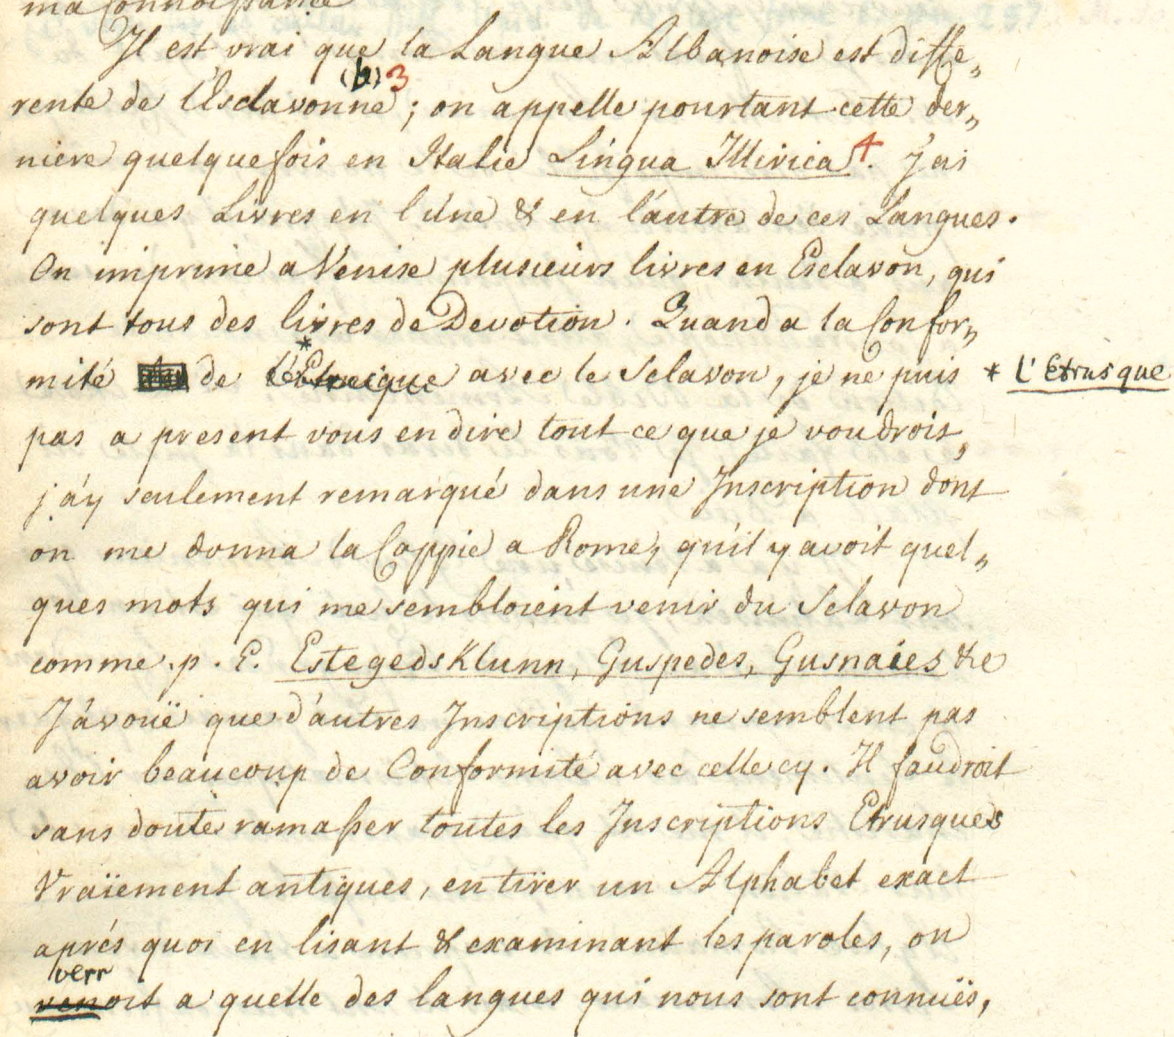 ma Connoissance
Il est vrai que la Langue Albanoise est diffe„
rente de l'Esclavonne (b) 3 ; on appelle pourtant cette der„
niere quelquefois en Italie Lingua Illirica 4. J'ai
quelques Livres en l'une & en l'autre de ces Langues.
On imprime a Venise plusieurs livres en Esclavon, qui
sont tous des livres de Devotion. Quand a la Confor„
mité de * avec le Sclavon, je ne puis * L'Etrusque
pas a present vous en dire tout ce que je voudrois,
j'ay seulement remarqué dans une Inscription dont
on me donna la Coppie a Rome, qu'il y avoit quel„
ques mots qui me sembloient venir du Sclavon
comme. p. E. Estegeds Klunn, Guspedes, Gusnaies &c
J'avouë que d'autres Inscriptions ne semblent pas
avoir beaucoup de Conformité avec celle cy. Il faudroit
sans doute ramasser toutes les Inscriptions Etrusques
Vraïement antiques, en tirer un Alphabet exact
aprés quoi en lisant & examinant les paroles, on
verr
venoit a quelle des langues qui nous sont connuës,